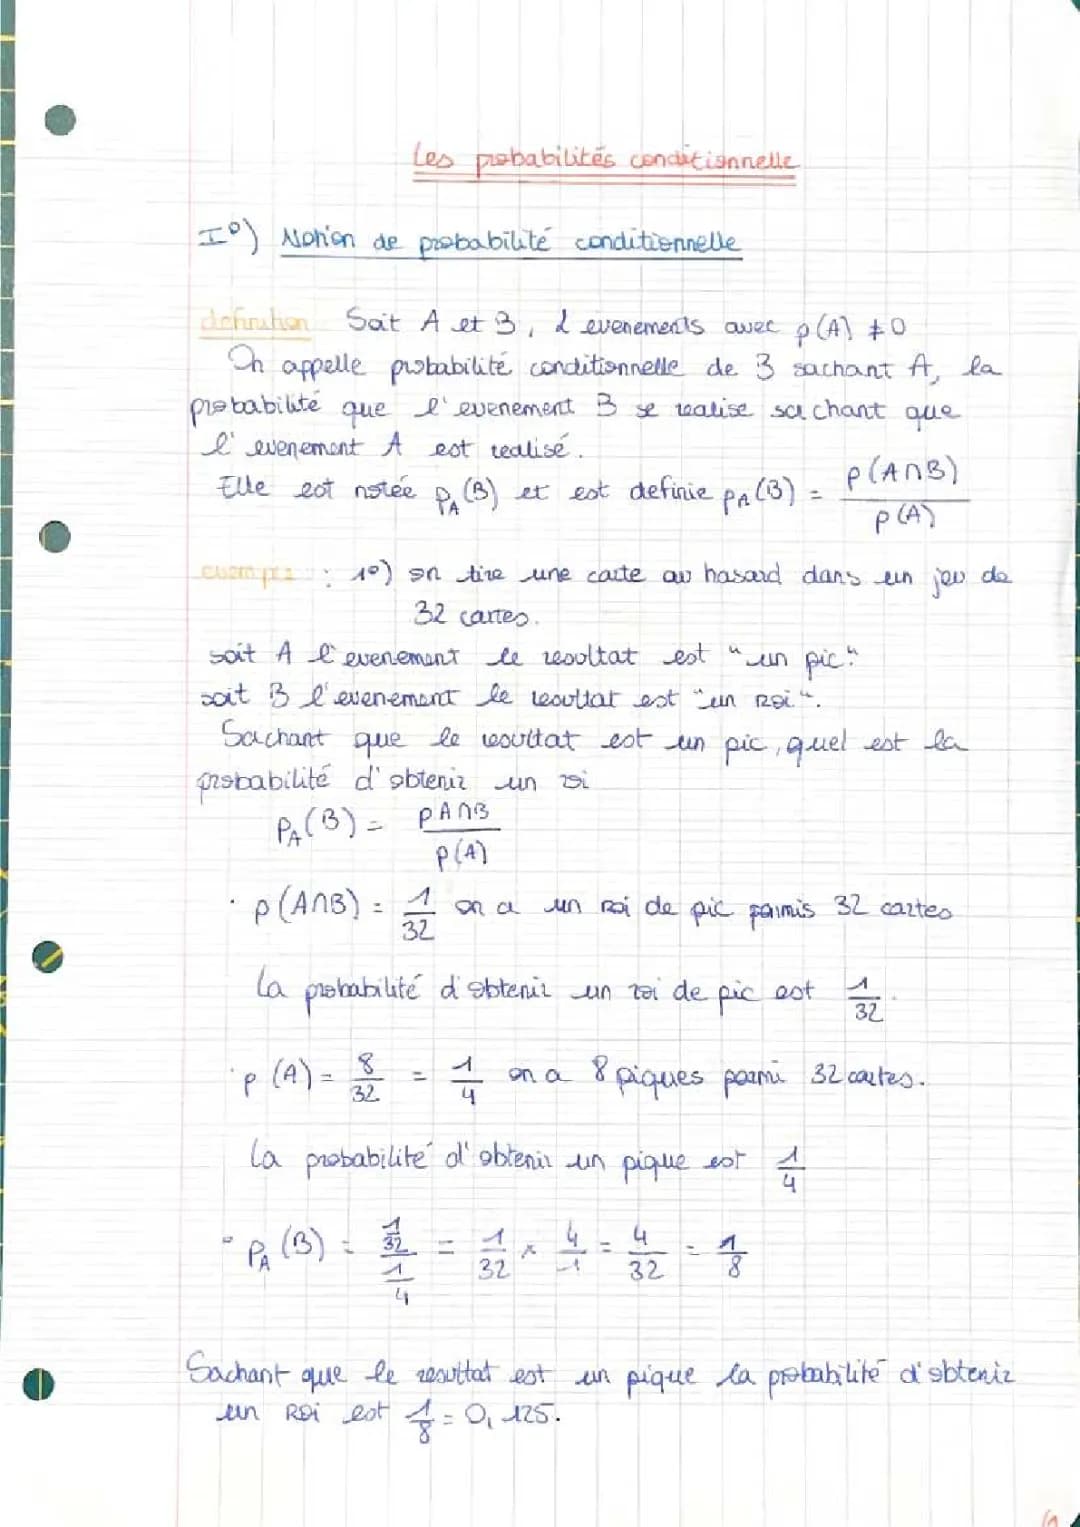 Les probabilités conditionnelle
I°) Notion de probabilité conditionnelle
definition Soit A et B, 2 evenements avec p(A) ≠ 0
On appelle probabilité conditionnelle de B sachant A, la
probabilité que l'evenement B se realise sachant que
l'evenement A est realisé.
Elle est notée p_A(B) et est definie p_A(B) = p(A∩B) / p(A)
exemple : 1°) on tire une carte au hasard dans un jeu de
32 cartes.
soit A l'evenement le resultat est "un pic"
soit B l'evenement le resultat est "un Roi".
Sachant que le resultat est un pic, quel est la
probabilité d'obtenir un roi
P_A(B) = pA∩B / p(A)
· p(A∩B) = 1/32 on a un roi de pic parmis 32 cartes
La probabilité d'obtenir un roi de pic est 1/32.
· p(A) = 8/32 = 1/4 on a 8 piques parmi 32 cartes.
La probabilité d'obtenir un pique est 1/4
· P_A(B) = (1/32)/(1/4) = 1/32 × 4/1 = 4/32 = 1/8
Sachant que le resultat est un pique la probabilité d'obtenir
un Roi est 1/8 = 0,125.